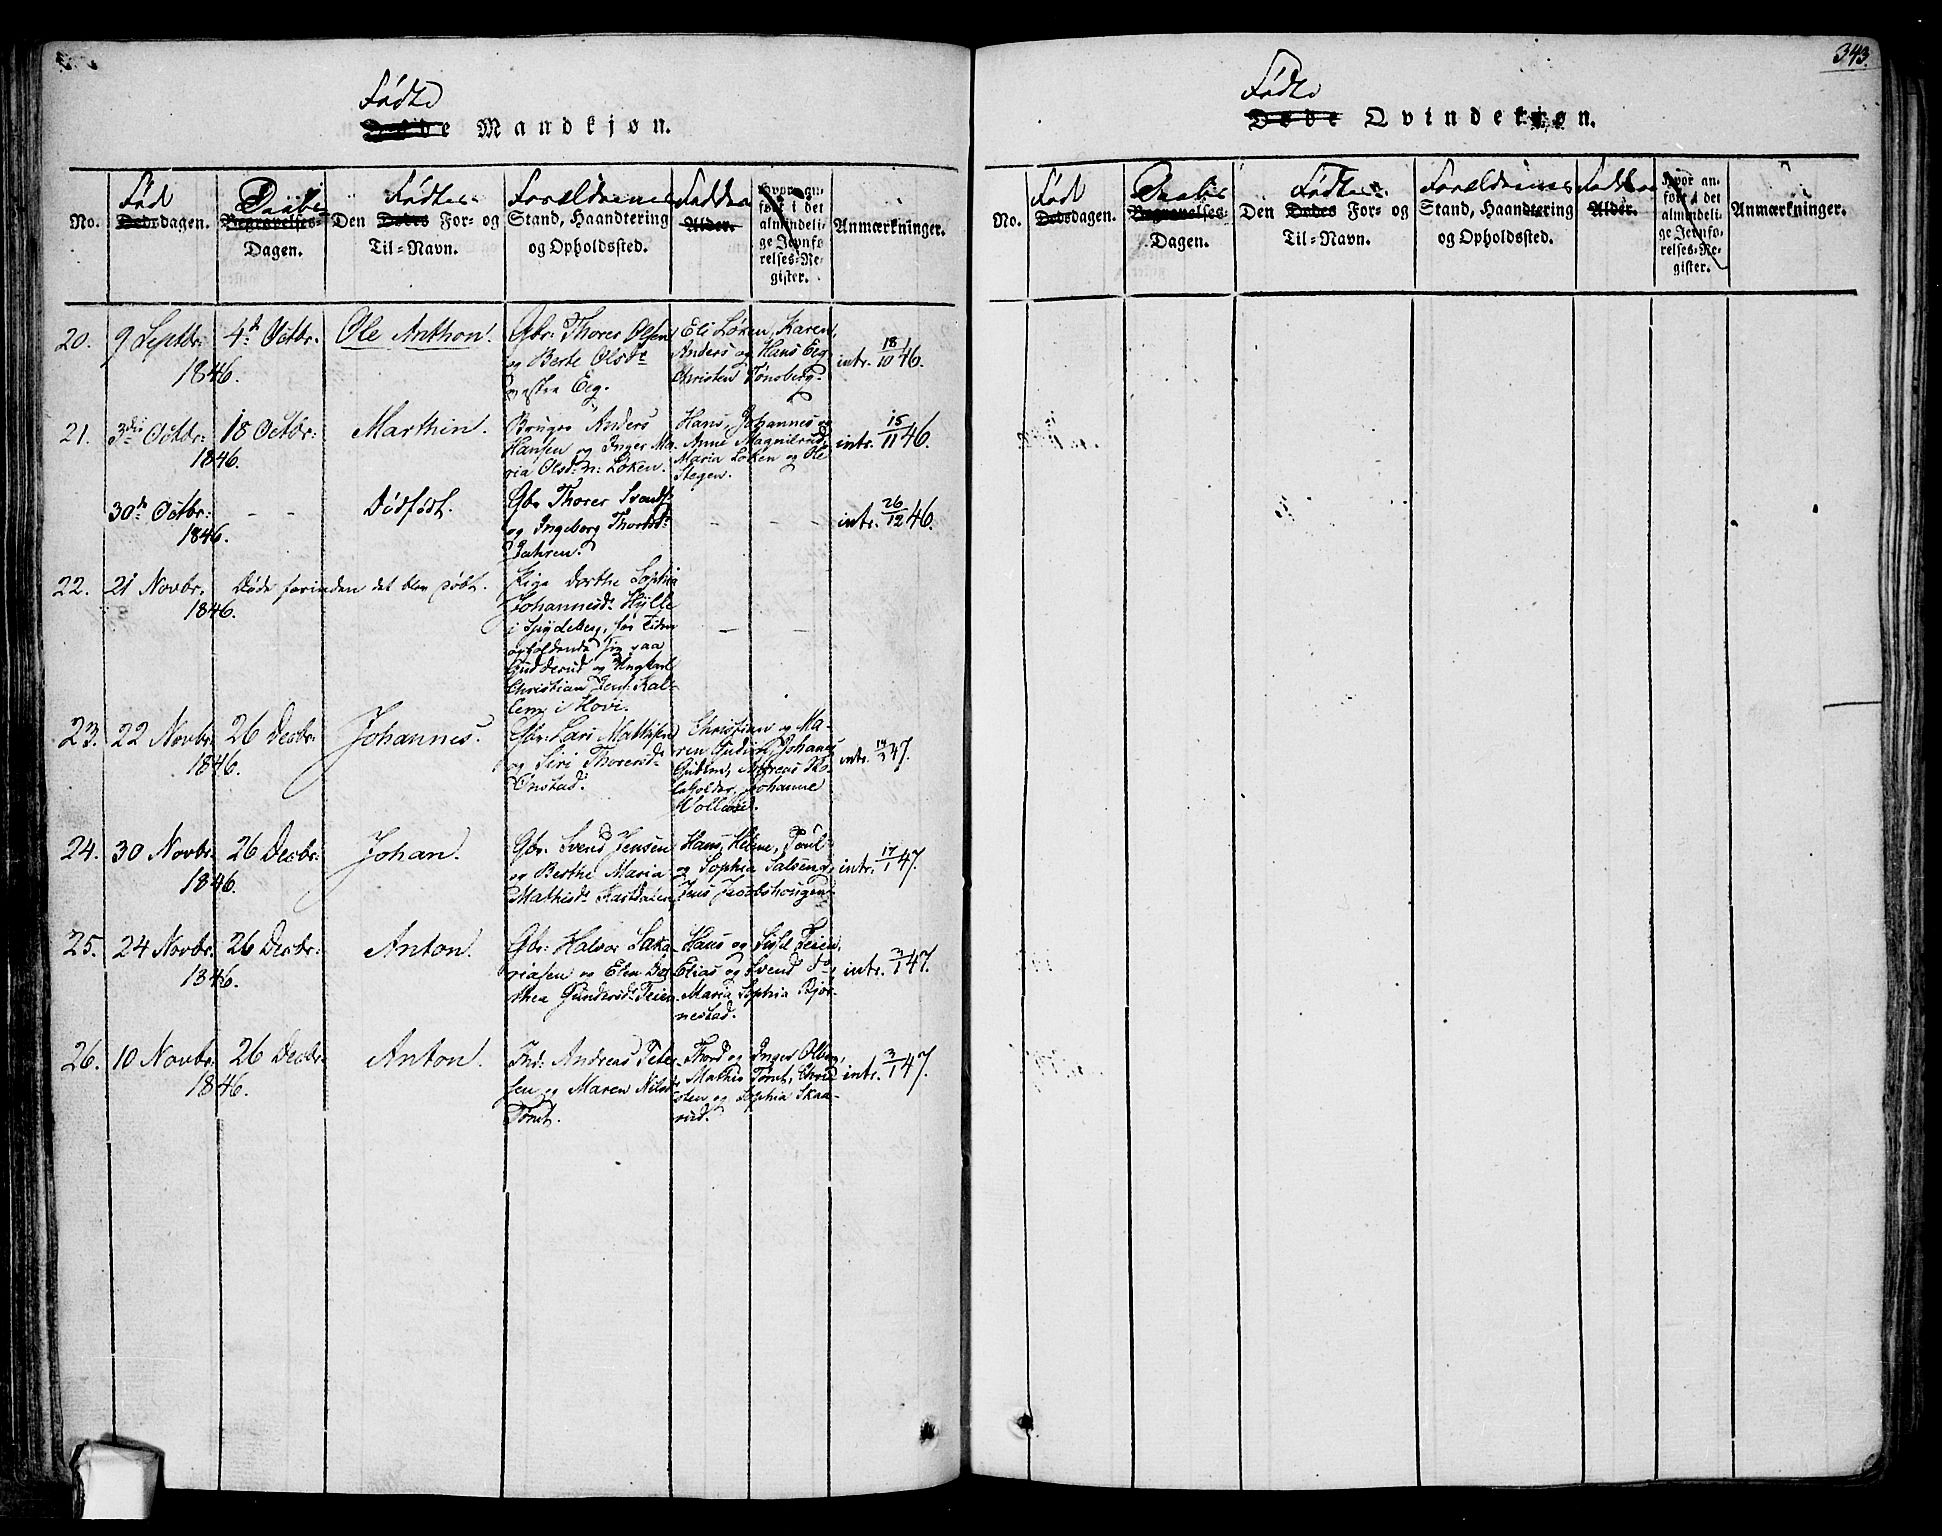 343.
Fødte
Døde Mandkjøn.
No.
Død Fødsdagen.
Daabs
Begravelses-
Dagen.
Fødtes
Den Dødes For- og
Til-Navn.
Forældrenes
Stand, Haandtering
og Opholdssted.
Faddere
Alder.
Hvor an-
ført i det
almindeli-
ge Jevnfø-
relses-Re-
gister.
Anmærkninger.
20. 9 Septbr:
1846.
4de Octbr.
Ole Anthon.
Gbr. Thorer Olsen
og Berte Olsdr
vestre Eeg.
Eli Løken, Karen,
Anders og Hans Eeg,
Christen Tønsberg.
intr. 18/10 46.
21. 3die Octbr:
1846.
18 Octbr:
Marthin.
Bruger Anders
Hansen og Inger Ma-
ria Olsdr n: Løken.
Hans, Johannes og
Anne Magnilrud,
Maria Løken og Ole
Stegen.
intr. 15/11 46.
30te Octbr:
1846.
- -
Dødfødt.
Gbr Thorer Svends
og Ingeborg Thorersdr
Jahren.
- - -
intr. 26/12 46.
22. 21 Novbr.
1846.
Døde forinden det blev døbt.
Pige Dorthe Sophia
Johannesdr Hylle
i Spydeberg, for Tiden
opholdende sig paa
Gudderud og Ungkarl
Christian Jens: Kal-
lem i Hovi.
- -
23. 22 Novbr.
1846.
26 Decbr.
Johannes.
Gbr: Lars Mathisen
og Siri Thorersdr
Onstad.
Christian og Ma-
ren Gudim, Johannes
Gudim, Andreas
Johanne
intr. 47.
24. 30 Novbr.
1846.
26 Decbr:
Johan.
Gbr. Svend Jensen
og Berthe Maria
Mathisdr
Hans, Helene, Poul
og Sophia
Jens Jacobshougen
intr. 17/1 47.
25. 24 Novbr.
1846.
26 Decbr:
Anton.
Gbr: Halvor Saka-
riasen og Elen Do-
thea Gundersdr Teien
Hans og Sissel Teien,
Elias og Svend do,
Maria Sophia Bjør-
nestad.
intr. 3/1 47.
26. 10 Novbr.
1846.
26 Decbr:
Anton.
Ind: Andreas Peter-
sen og Maren Nilsdr
Tømt.
Thord og Inger
Mathis Tømt, Chri-
sten og Sophia Skaa-
rud.
intr. 3/1 47.
Fødte
Døde Qvindekjøn.
No.
Født
Dødsdagen.
Daabs
Begravelses-
Dagen.
Fødtes
Den Dødes For- og
Til-Navn.
Forældrenes
Stand, Haandtering
og Opholdssted.
Faddere
Alder.
Hvor an-
ført i det
almindeli-
ge Jevnfø-
relses-Re-
gister.
Anmærkninger.